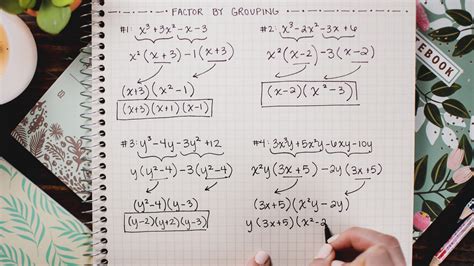 FACTOR BY GROUPING
#1: x³+3x²-x-3
x²(x+3)-1(x+3)
(x+3)(x²-1)
(x+3)(x+1)(x-1)
#2: x³-2x²-3x+6
x²(x-2)-3(x-2)
(x-2)(x²-3)
#3: y³-4y-3y²+12
y(y²-4)-3(y²-4)
(y²-4)(y-3)
(y-2)(y+2)(y-3)
#4: 3x³y+5x²y-6xy-10y
x²y(3x+5)-2y(3x+5)
(3x+5)(x²y-2y)
y(3x+5)(x²-2
EBOOK